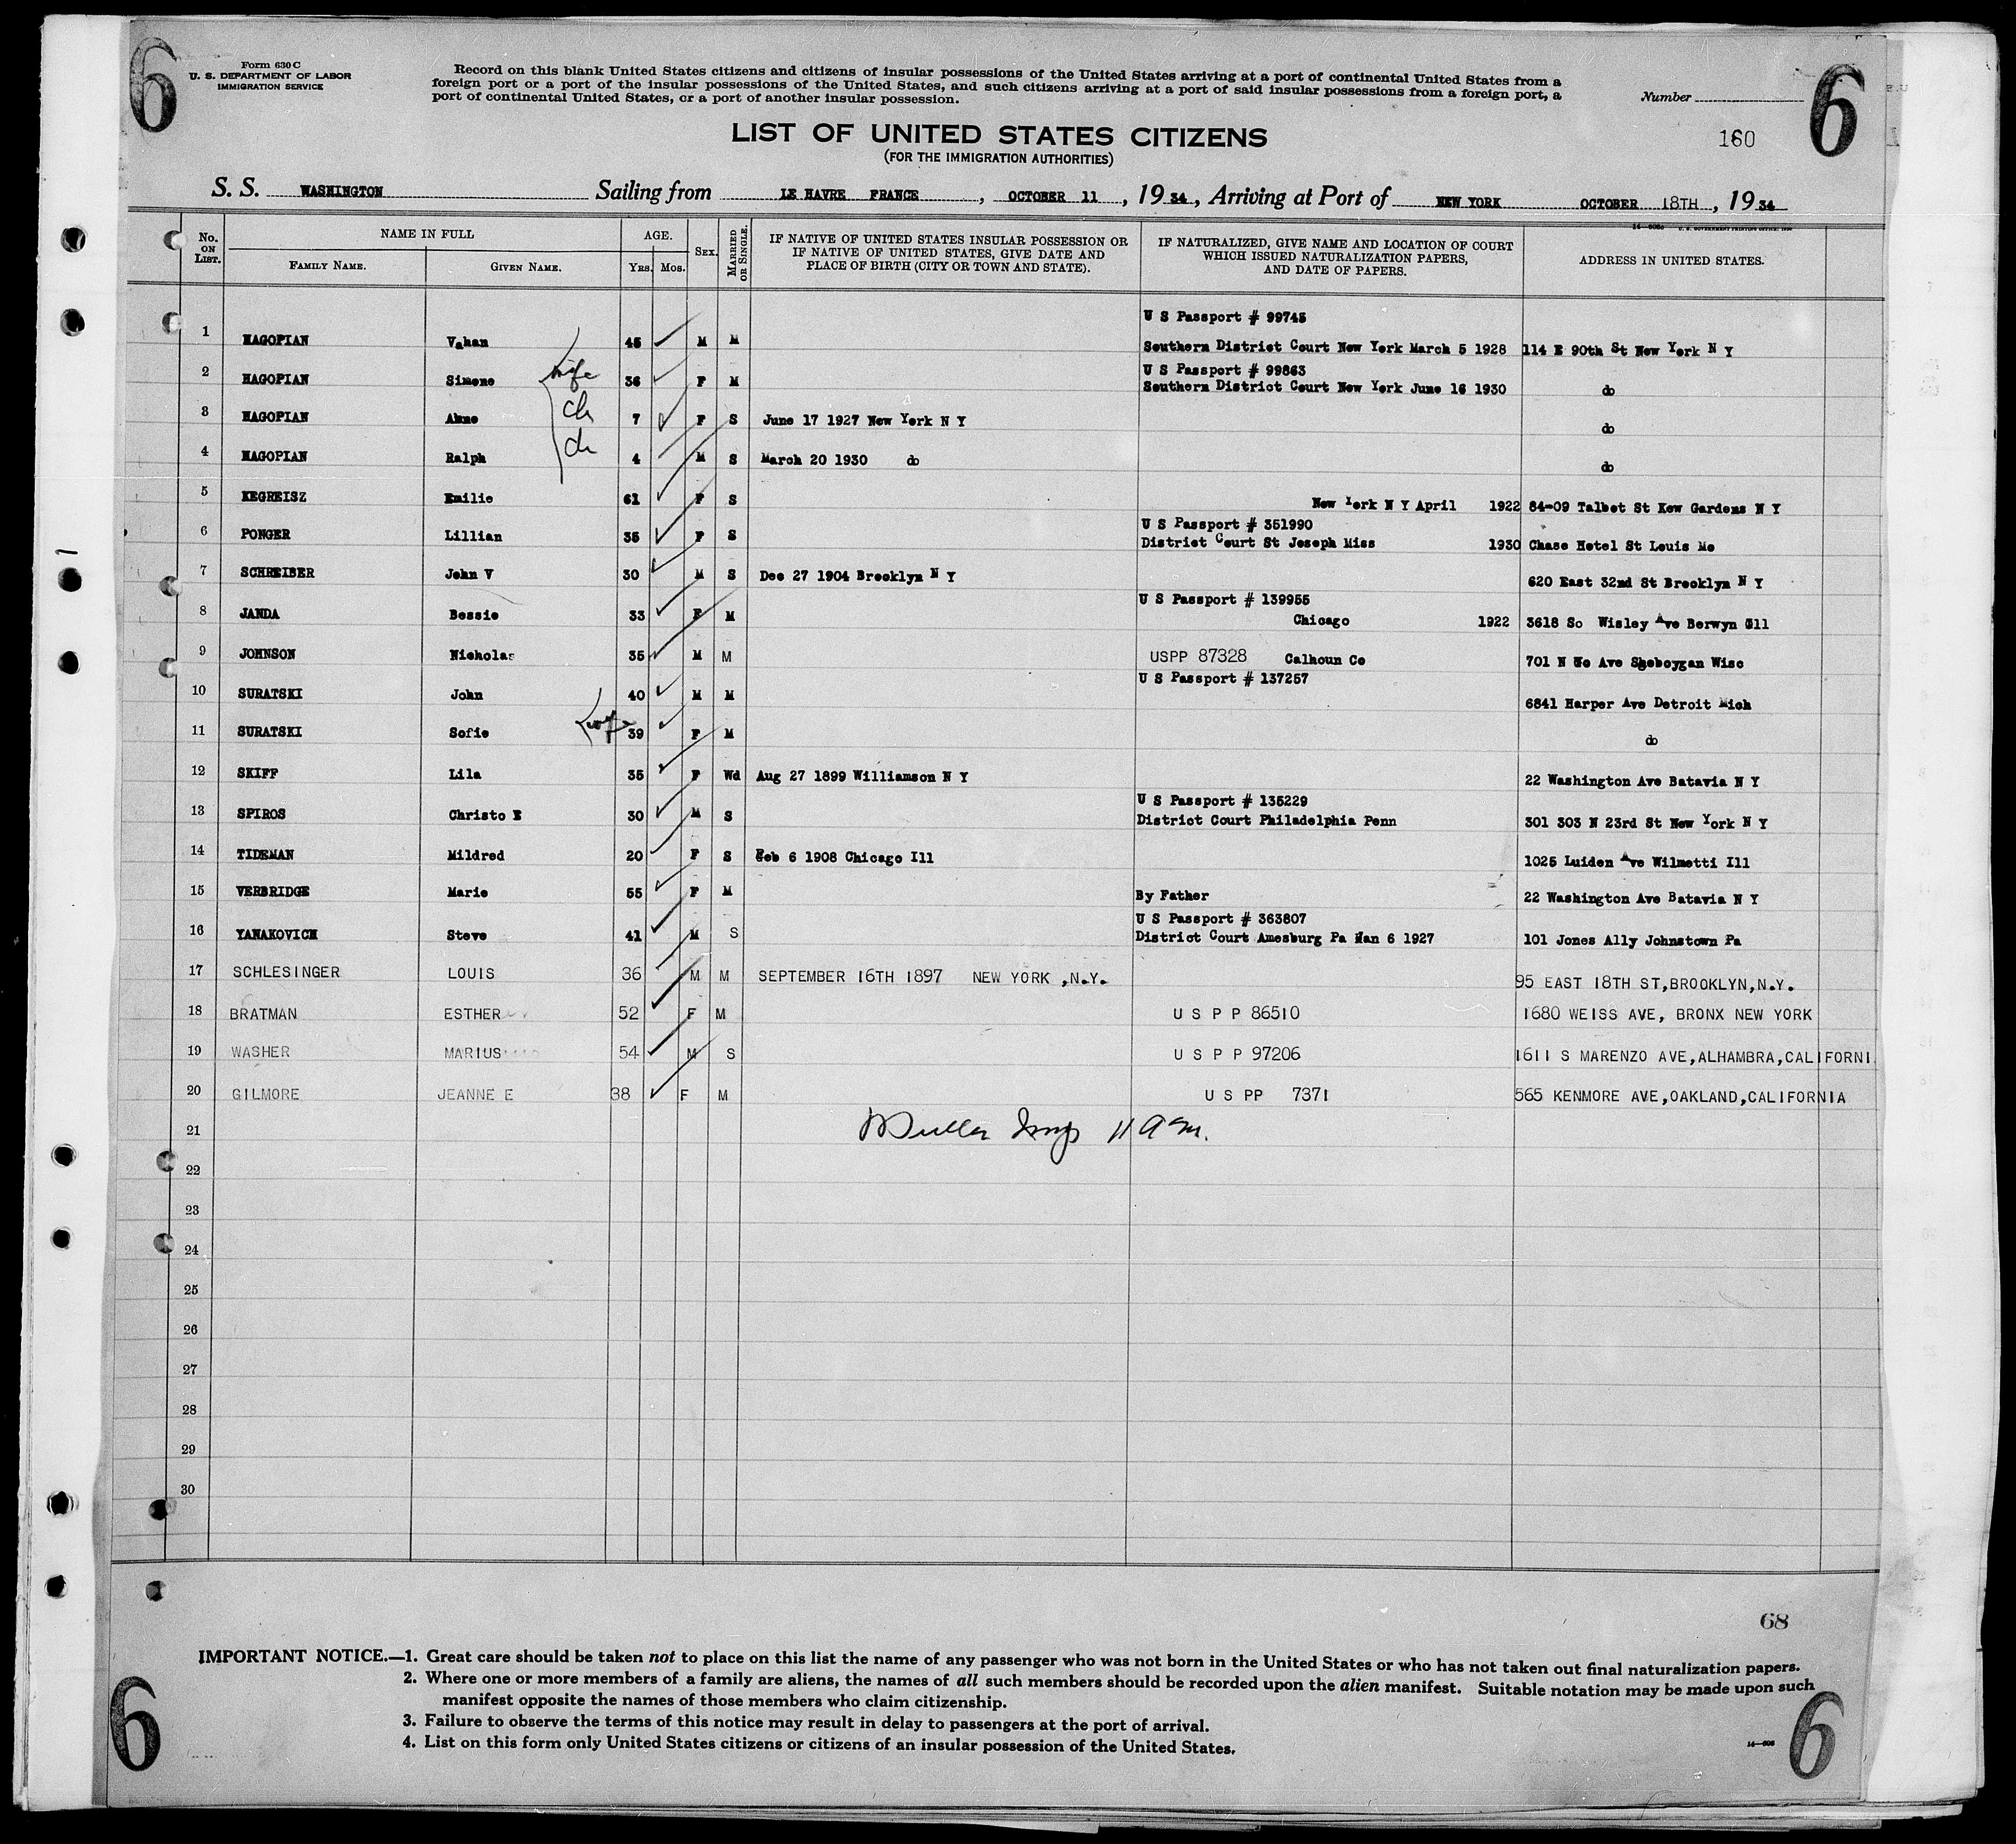 6
6
Form 630 C
U. S. DEPARTMENT OF LABOR
IMMIGRATION SERVICE
Record on this blank United States citizens and citizens of insular possessions of the United States arriving at a port of continental United States from a
foreign port or a port of the insular possessions of the United States, and such citizens arriving at a port of said insular possessions from a foreign port, a
port of continental United States, or a port of another insular possession.
Number
160
LIST OF UNITED STATES CITIZENS
(FOR THE IMMIGRATION AUTHORITIES)
S. S. WASHINGTON Sailing from LE HAVRE FRANCE, OCTOBER 11, 1934, Arriving at Port of NEW YORK OCTOBER 18TH, 1934
No. ON LIST. NAME IN FULL FAMILY NAME. GIVEN NAME. AGE. YRS. MOS. SEX. MARRIED OR SINGLE. IF NATIVE OF UNITED STATES INSULAR POSSESSION OR IF NATIVE OF UNITED STATES, GIVE DATE AND PLACE OF BIRTH (CITY OR TOWN AND STATE). IF NATURALIZED, GIVE NAME AND LOCATION OF COURT WHICH ISSUED NATURALIZATION PAPERS, AND DATE OF PAPERS. ADDRESS IN UNITED STATES.
U S Passport # 99745
1 HAGOPIAN Vahan 45 M M Southern District Court New York March 5 1928 114 E 90th St New York N Y
U S Passport # 99863
2 HAGOPIAN Simone wife 36 F M Southern District Court New York June 16 1930 do
3 HAGOPIAN Anne ch 7 F S June 17 1927 New York N Y do
4 HAGOPIAN Ralph ch 4 M S March 20 1930 do do
5 KEGREISZ Emilie 61 F S New York N Y April 1922 84-09 Talbot St Kew Gardens N Y
U S Passport # 351990
6 PONGER Lillian 35 F S District Court St Joseph Miss 1930 Chase Hotel St Louis Mo
7 SCHREIBER John V 30 M S Dec 27 1904 Brooklyn N Y 620 East 32nd St Brooklyn N Y
U S Passport # 139955
8 JANDA Bessie 33 F M Chicago 1922 3618 So Wisley Ave Berwyn Ill
9 JOHNSON Nicholas 35 M M USPP 87328 Calhoun Co 701 N Ave Sheboygan Wisc
U S Passport # 137257
10 SURATSKI John 40 M M 6841 Harper Ave Detroit Mich
11 SURATSKI Sofie wife 39 F M do
12 SKIFF Lila 35 F Wd Aug 27 1899 Williamson N Y 22 Washington Ave Batavia N Y
U S Passport # 135229
13 SPIROS Christo E 30 M S District Court Philadelphia Penn 301 303 N 23rd St New York N Y
14 TIDEMAN Mildred 20 F S Feb 6 1908 Chicago Ill 1025 Luiden Ave Wilmetti Ill
15 VERBRIDGE Marie 55 F M By Father 22 Washington Ave Batavia N Y
U S Passport # 363807
16 YANAKOVICH Steve 41 M S District Court Amesburg Pa Jan 6 1927 101 Jones Ally Johnstown Pa
17 SCHLESINGER LOUIS 36 M M SEPTEMBER 16TH 1897 NEW YORK ,N.Y. 95 EAST 18TH ST,BROOKLYN,N.Y.
18 BRATMAN ESTHER 52 F M U S P P 86510 1680 WEISS AVE, BRONX NEW YORK
19 WASHER MARIUS 54 M S U S P P 97206 1611 S MARENZO AVE,ALHAMBRA,CALIFORNI
20 GILMORE JEANNE E 38 F M U S PP 7371 565 KENMORE AVE,OAKLAND,CALIFORNIA
21 Muller Insp 11 am.
22
23
24
25
26
27
28
29
30
68
IMPORTANT NOTICE.—1. Great care should be taken not to place on this list the name of any passenger who was not born in the United States or who has not taken out final naturalization papers.
2. Where one or more members of a family are aliens, the names of all such members should be recorded upon the alien manifest. Suitable notation may be made upon such
manifest opposite the names of those members who claim citizenship.
3. Failure to observe the terms of this notice may result in delay to passengers at the port of arrival.
4. List on this form only United States citizens or citizens of an insular possession of the United States.
6
6